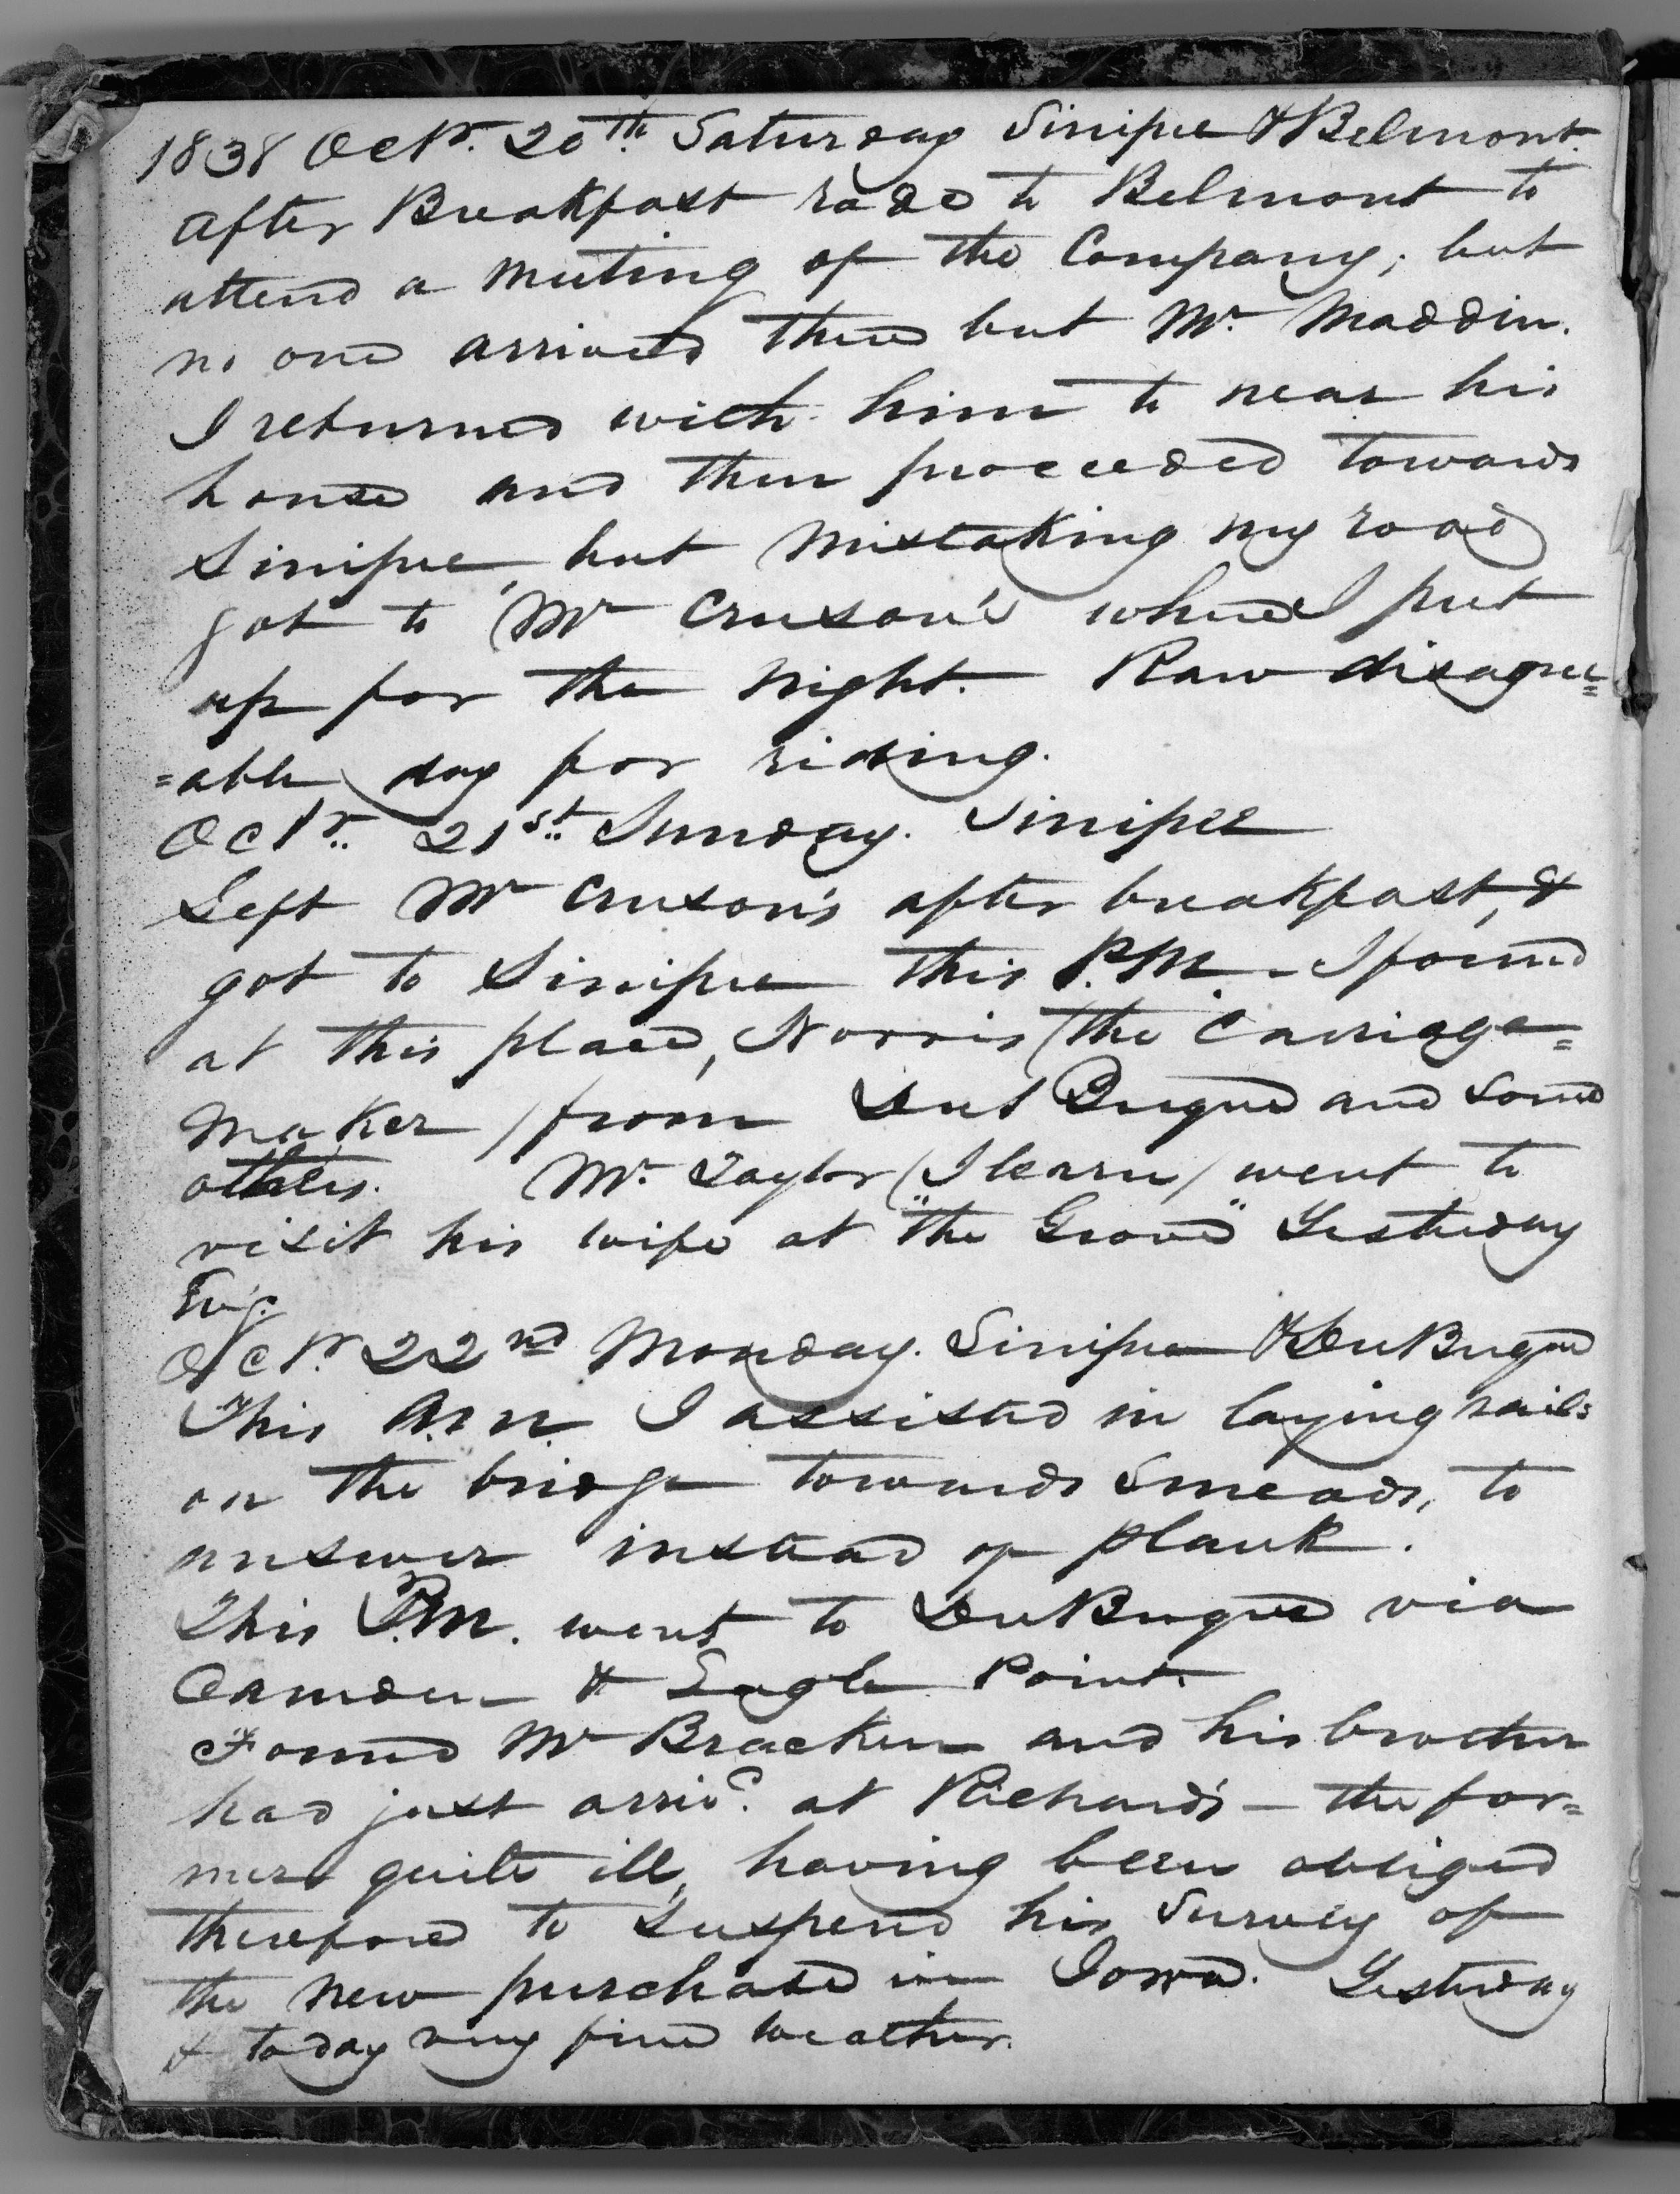 1838 Octr. 20th. Saturday Sinipee & Belmont.
after Breakfast rode to Belmont to
attend a meeting of the Company; but
no one arrived there but Mr. Maddin.
I returned with him to near his
house and then proceeded towards
Sinipee, but mistaking my road
got to Mr Cruson's where I put
up for the night. Raw disagree=
=able day for riding.
Octr. 21st. Sunday. Sinipee
Left Mr Cruson's after breakfast, &
got to Sinipee this P.M. - I found
at this place, Norris (the Carriage=
maker) from DuBuque and some
others. Mr. Taylor (I learn) went to
visit his wife at "the Grove" Yesterday
Evg.
Octr. 22nd Monday. Sinipee & DuBuque
This A.M. I assisted in laying rails
on the bridge towards Smeads, to
answer instead of plank.
This P.M. went to DuBuque via
Camden & Eagle Point.
Found Mr Bracken and his brother
had just arrivd. at Richard's — the for=
mer quite ill, having been obliged
therefore to suspend his survey of
the new purchase in Iowa. Yesterday
& today very fine weather.